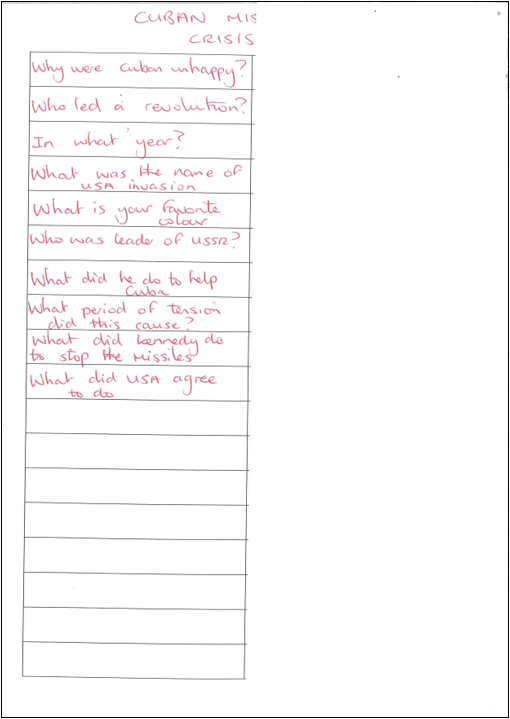 CUBAN MIS
CRISIS
Why were Cuban unhappy?
Who led a revolution?
In what year?
What was the name of
USA invasion
What is your favorite
colour
Who was leader of USSR?
What did he do to help
Cuba
What period of tension
did this cause?
What did kennedy do
to stop the Missiles
What did USA agree
to do